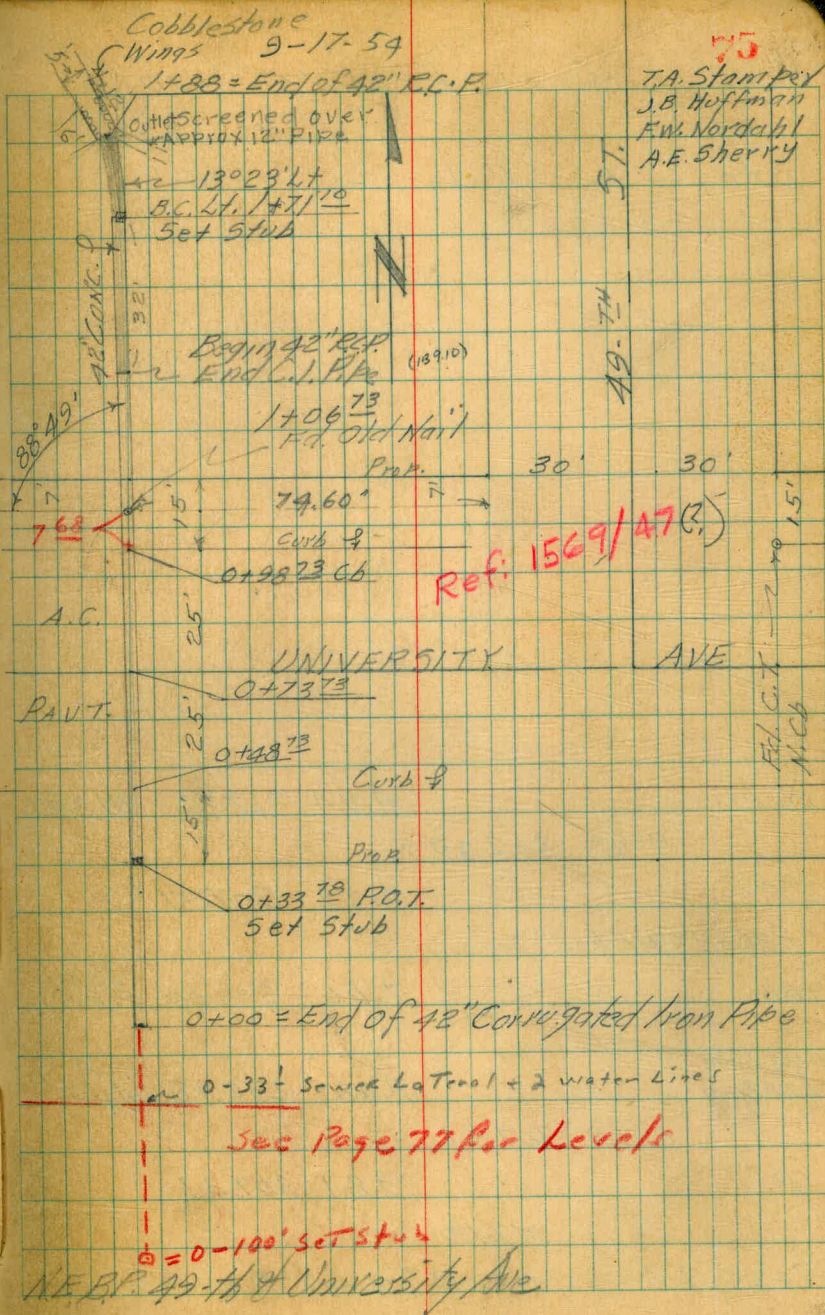 Cobblestone
Wings 9-17-54
75
1+88 = End of 42" R.C.P.
T.A. Stamper
J.B. Huffman
F.W. Nordahl
A.E. Sherry
Outlet Screened over
Approx 12" Pipe
13°23' Lt
B.C. Lt. 1+71 10
Set Stub
N
49-TH ST.
42" CONC. P
32'
Begin 42" R.C.P.
End C.I. Pipe
(139.10)
88°49'
1+06 73
Fd. Old Nail
Prop. 30' 30'
7'
15'
74.60'
7'
7 68
Curb ℄
0+98 73 Cb
Ref: 1569/47 (?)
15'
A.C.
25'
UNIVERSITY AVE
0+73 73
PAVT.
25'
0+48 73
Curb ℄
N. Cb
15'
Prop.
0+33 78 P.O.T.
Set Stub
0+00 = End Of 42" Corrugated Iron Pipe
0-33' Sewer Lateral + 2 water Lines
See Page 77 for Levels
= 0-100' Set Stub
N.E.B.P. 49-th & University Ave